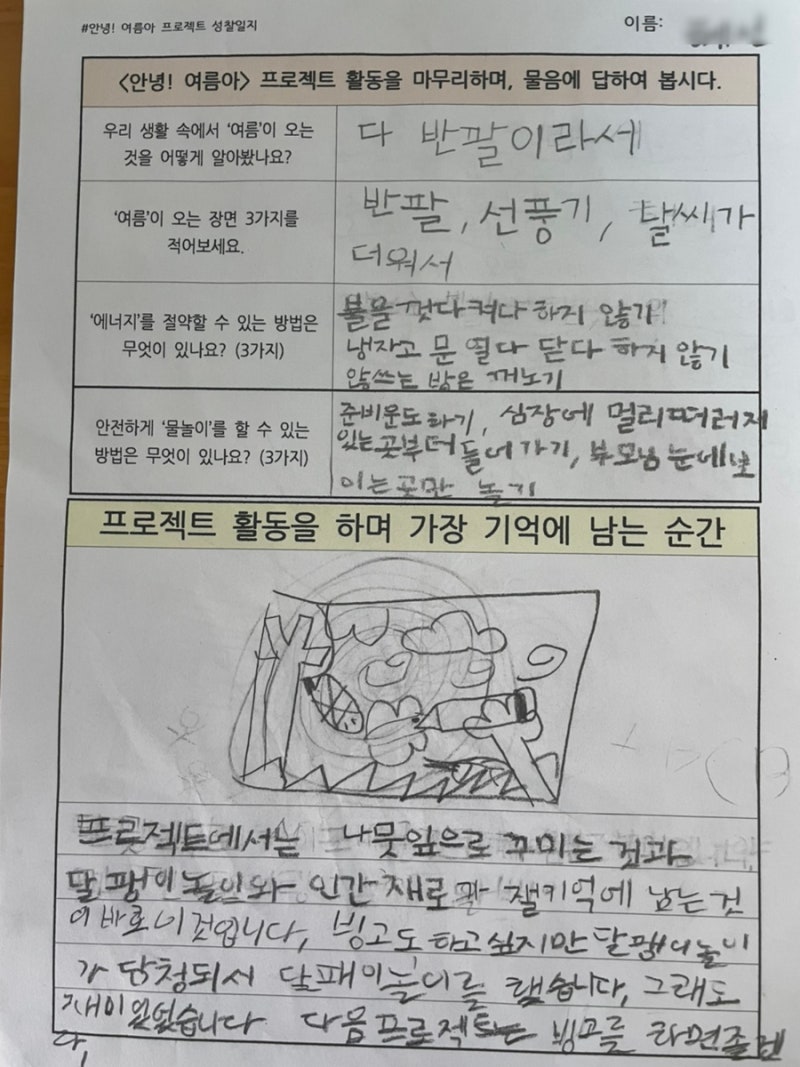 #안녕! 여름아 프로젝트 성찰일지
이름:
<안녕! 여름아> 프로젝트 활동을 마무리하며, 물음에 답하여 봅시다.
우리 생활 속에서 '여름'이 오는
것을 어떻게 알아봤나요?
다 반팔이라서
'여름'이 오는 장면 3가지를
적어보세요.
반팔, 선풍기, 날씨가
더워서
'에너지'를 절약할 수 있는 방법은
무엇이 있나요? (3가지)
불을 껏다켜다 하지 않기
냉자고 문 열다 닫다 하지 않기
않쓰는 방은 꺼노기
안전하게 '물놀이'를 할 수 있는
방법은 무엇이 있나요? (3가지)
준비운도하기, 심장에 멀리떠러저
있는곳부더 들어가기, 부모님 눈에보
이는곳만 놀기
프로젝트 활동을 하며 가장 기억에 남는 순간
프롲젝트에서는 나뭇잎으로 꾸미는 것과
달팽이놀이와 인간 재로 잴키억에 남는것
이 바로 이것입니다, 빙고도 하고싶지만 달팽이놀이
가 당청되서 달패이놀이를 했습니다, 그래도
재미있었습니다 다음프로젝트는 빙고를 하면좋겠
다,